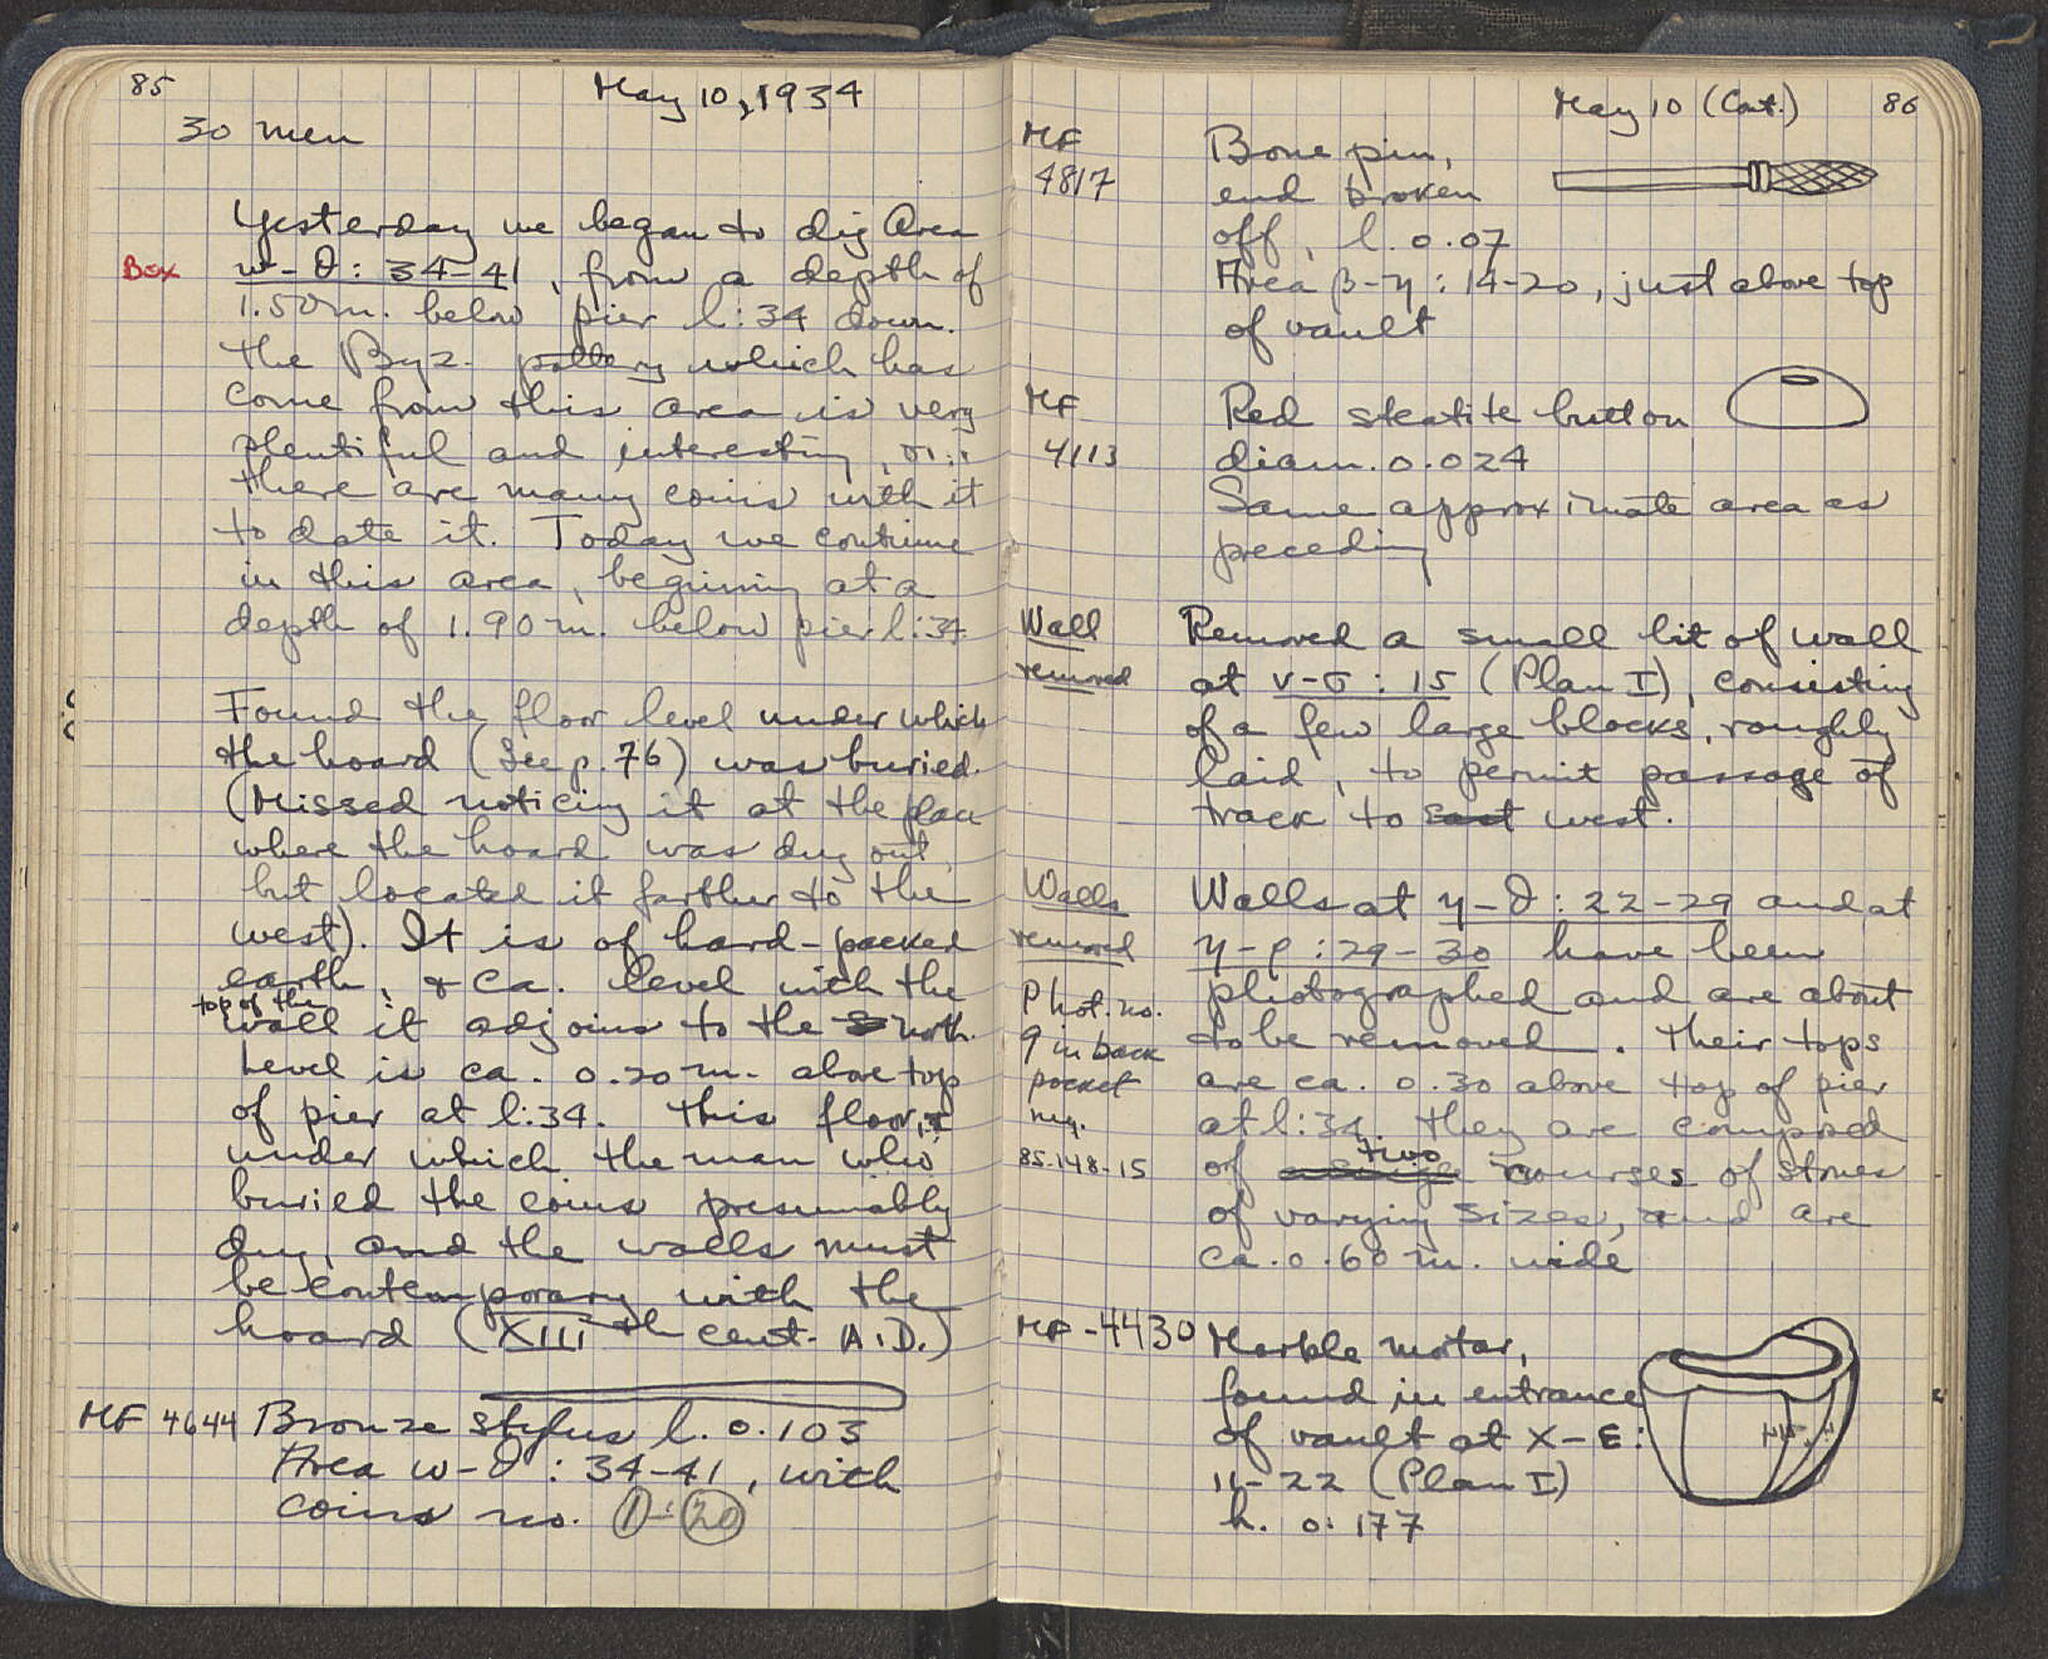 85
May 10, 1934
30 men
Yesterday we began to dig Area
Box
w-θ: 34-41, from a depth of
1.50 m. below pier l:34 down.
The Byz. pottery which has
come from this area is very
plentiful and interesting,
there are many coins with it
to date it. Today we continue
in this area, beginning at a
depth of 1.90 m. below pier l:34
Found the floor level under which
the hoard (See p. 76) was buried.
(Missed noticing it at the place
where the hoard was dug out,
but located it farther to the
west). It is of hard-packed
earth, & ca. level with the
top of the
wall it adjoins to the north.
Level is ca. 0.20 m. above top
of pier at l:34. This floor,
under which the man who
buried the coins presumably
dug, and the walls must
be contemporary with the
hoard (XIIIth cent. A.D.)
MF 4644 Bronze stylus l. 0.103
Area w-θ: 34-41, with
coins no. 1-20
May 10 (Cont.)
86
MF
4817
Bone pin,
end broken
off, l. 0.07
Area β-η: 14-20, just above top
of vault
MF
4113
Red steatite button
diam. 0.024
Same approximate area as
preceding
Wall
removed
Removed a small bit of wall
at v-σ: 15 (Plan I), consisting
of a few large blocks, roughly
laid, to permit passage of
track to east west.
Walls
removed
Phot. no.
9 in back
pocket
neg.
85-148-15
Walls at η-θ: 22-29 and at
η-ρ: 29-30 have been
photographed and are about
to be removed. Their tops
are ca. 0.30 above top of pier
at l:34. They are composed
two
of a single courses of stones
of varying sizes, and are
ca. 0.60 m. wide
MF-4430
Marble mortar,
found in entrance
of vault at X-E:
11-22 (Plan I)
h. 0.177